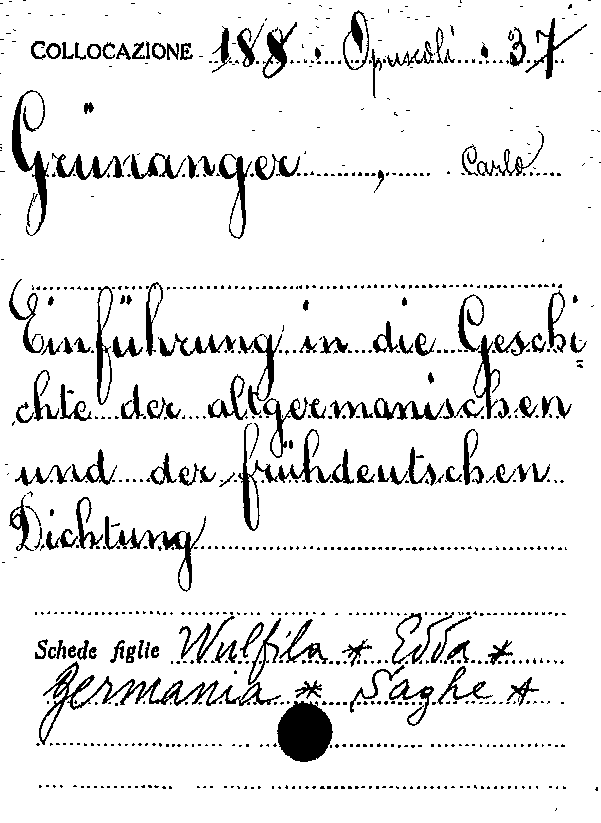 COLLOCAZIONE 188 . Opuscoli . 37
Grünanger , Carlo
Einführung in die Geschi=
chte der altgermanischen
und der frühdeutschen
Dichtung
Schede figlie Wulfila * Edda *
Germania * Saghe *